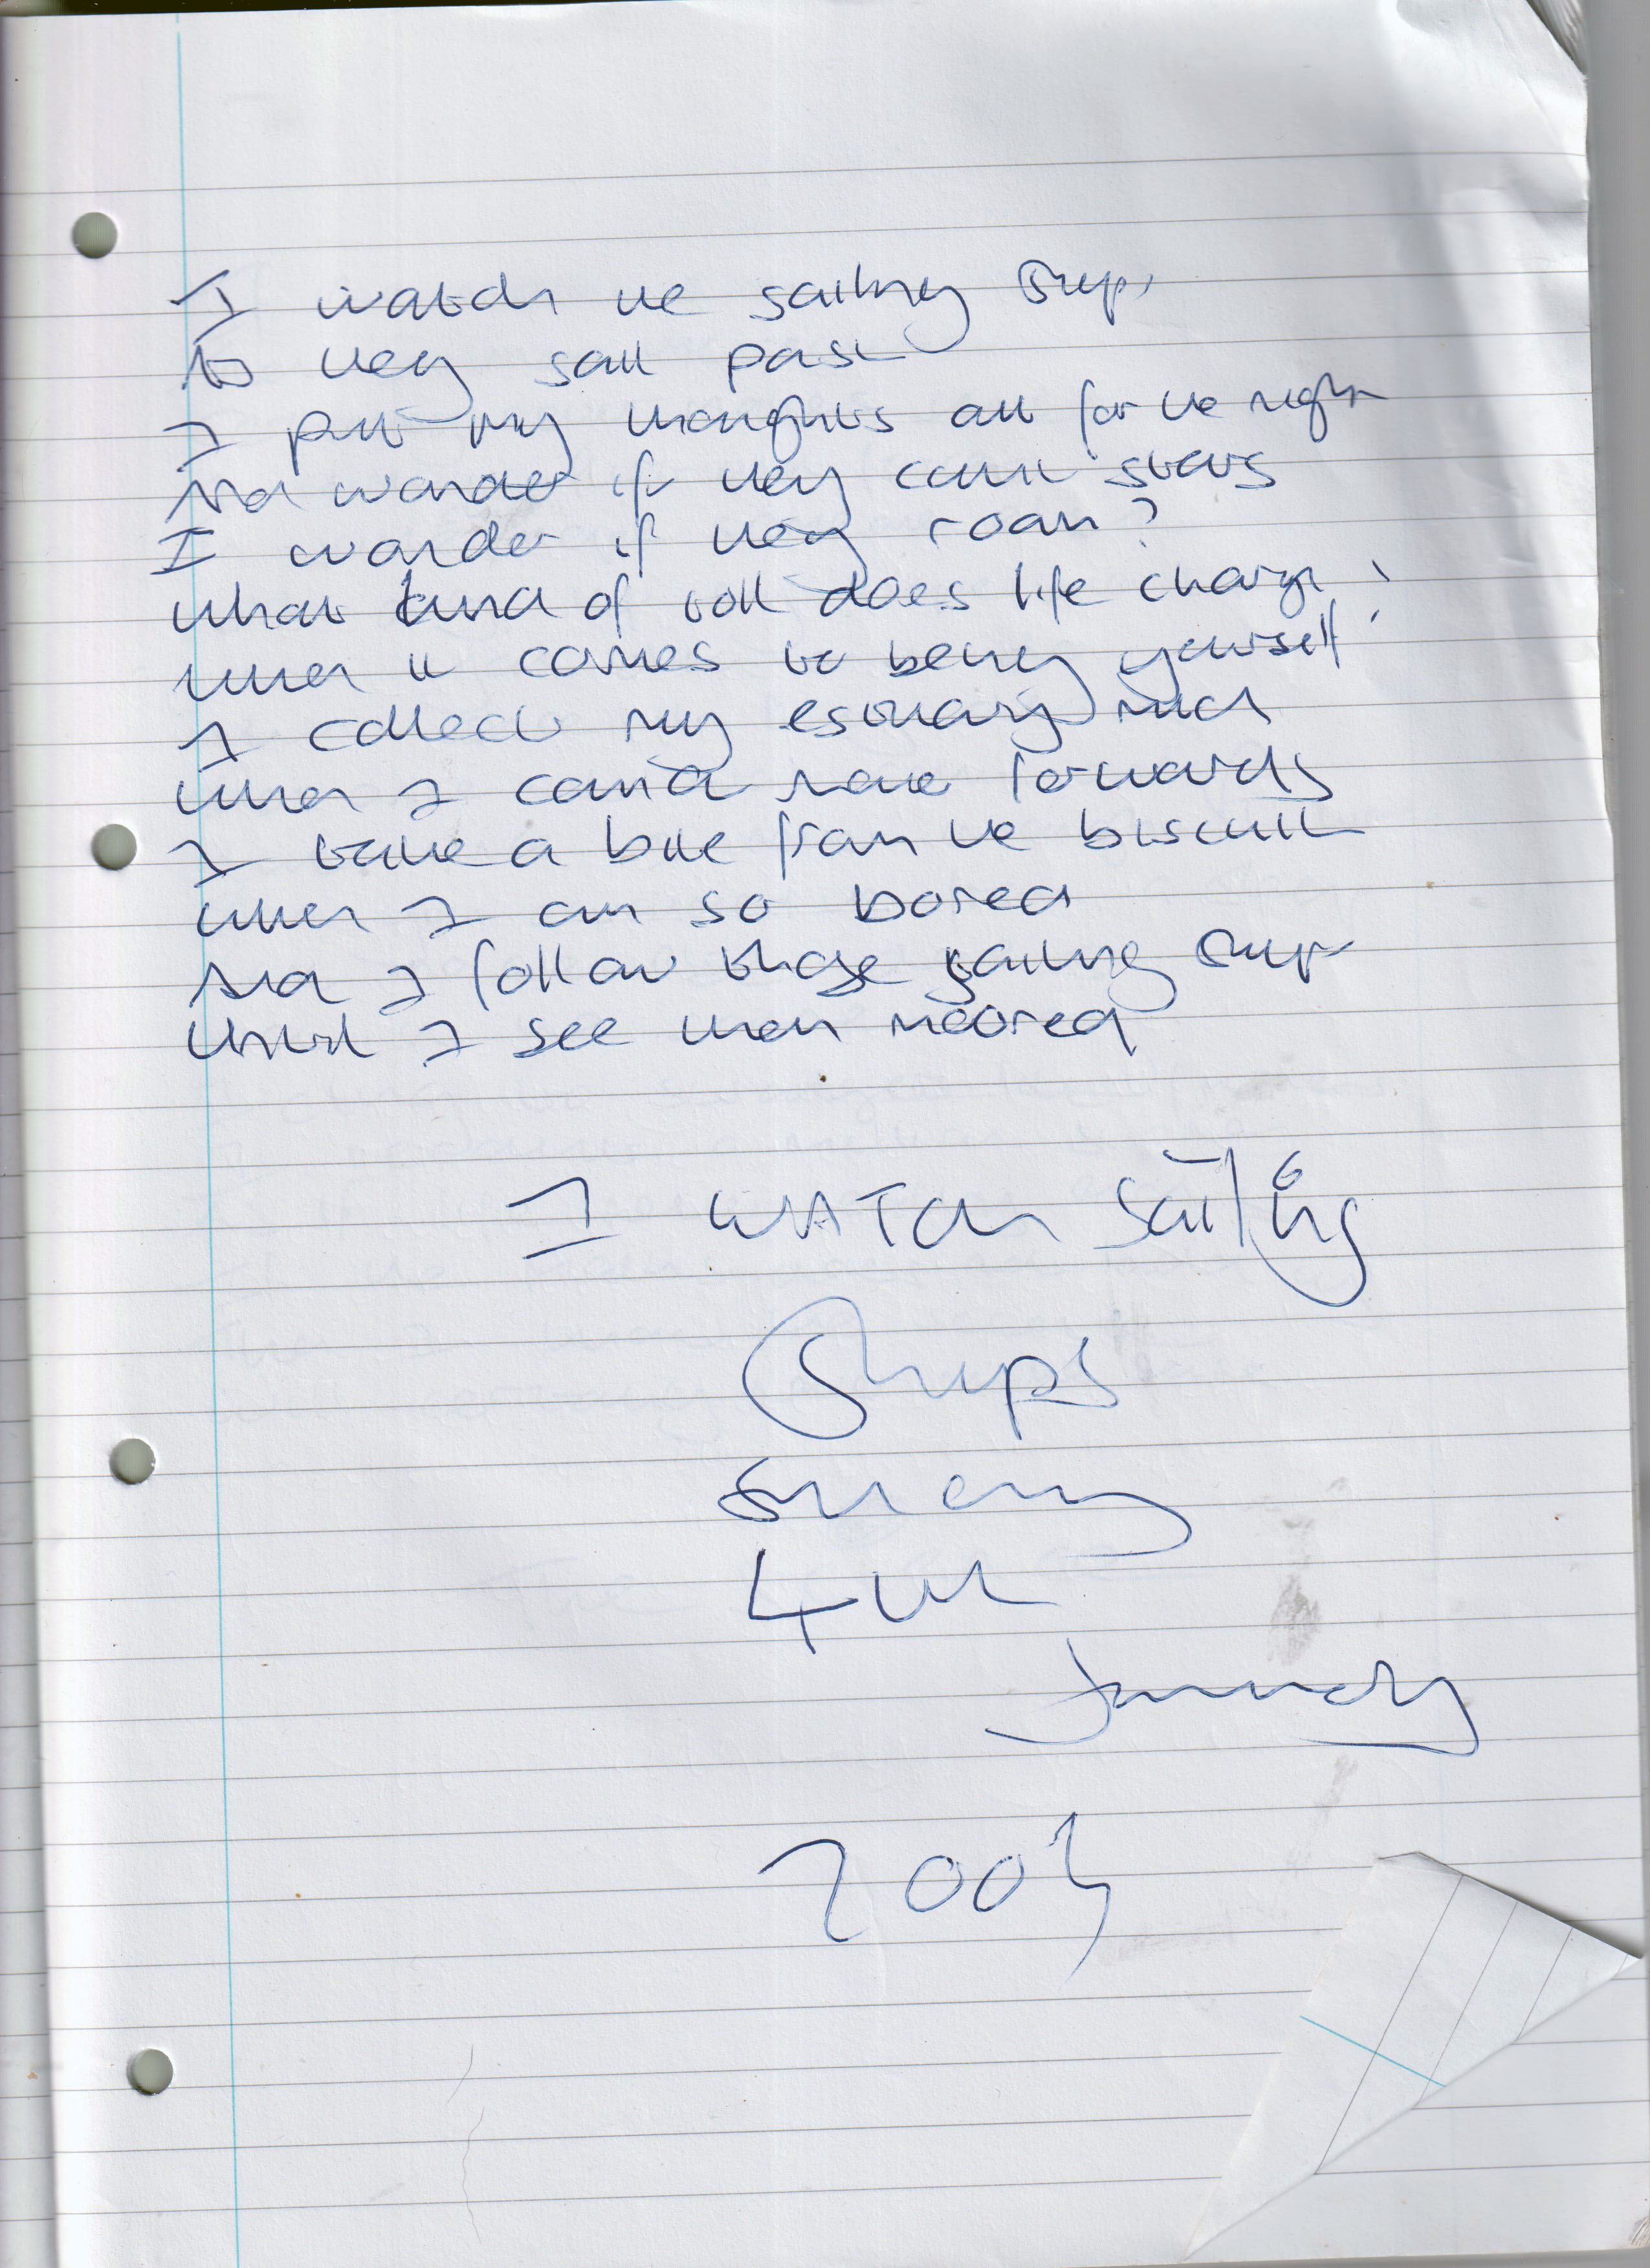 I watch the sailing ships
As they sail past
I put my thoughts out for the night
And wonder if they count stars
I wonder if they roam?
What kind of toll does life charge
When it comes to being yourself?
I collect my estuary mud
When I cannot move forwards
I take a bite from the biscuit
When I am so bored
And I follow those sailing ships
Until I see them moored
I WATCH Sailing
Ships
Sunday
4th
January